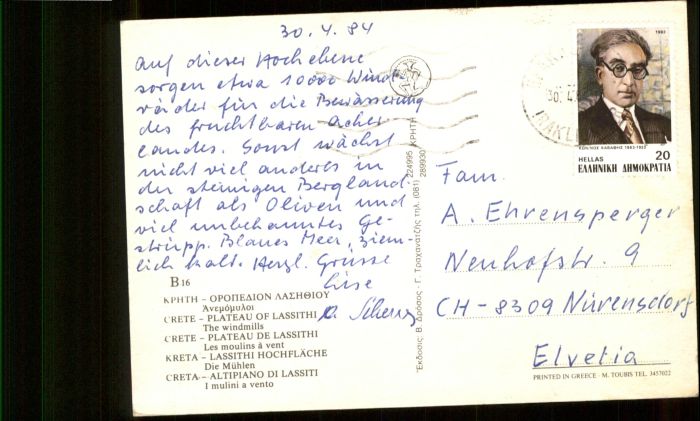 30.4.84
Auf dieser Hochebene
sorgen etwa 10000 Wind-
räder für die Bewässerung
des fruchtbaren Acker
landes. Sonst wächst
nicht viel anderes in
der steinigen Bergland-
schaft als Oliven und
viel unbekanntes Ge-
strüpp. Blaues Meer, ziem-
lich kalt. Herzl. Grüsse
B16
ΚΡΗΤΗ – ΟΡΟΠΕΔΙΟΝ ΛΑΣΗΘΙΟΥ
Ἀνεμόμυλοι
CRETE – PLATEAU OF LASSITHI
The windmills
CRETE – PLATEAU DE LASSITHI
Les moulins à vent
KRETA – LASSITHI HOCHFLÄCHE
Die Mühlen
CRETA – ALTIPIANO DI LASSITI
I mulini a vento
Ἔκδοσις: Β. Δρόσος - Γ. Τραχανατζής τηλ. (081) 224995 ΚΡΗΤΗ
289930
1983
ΚΩΝ/ΝΟΣ ΚΑΒΑΦΗΣ 1863-1933
HELLAS 20
ΕΛΛΗΝΙΚΗ ΔΗΜΟΚΡΑΤΙΑ
Fam.
A. Ehrensperger
Neuhofstr. 9
CH-8309 Nürensdorf
Elvetia
PRINTED IN GREECE - M. TOUBIS TEL. 3457022